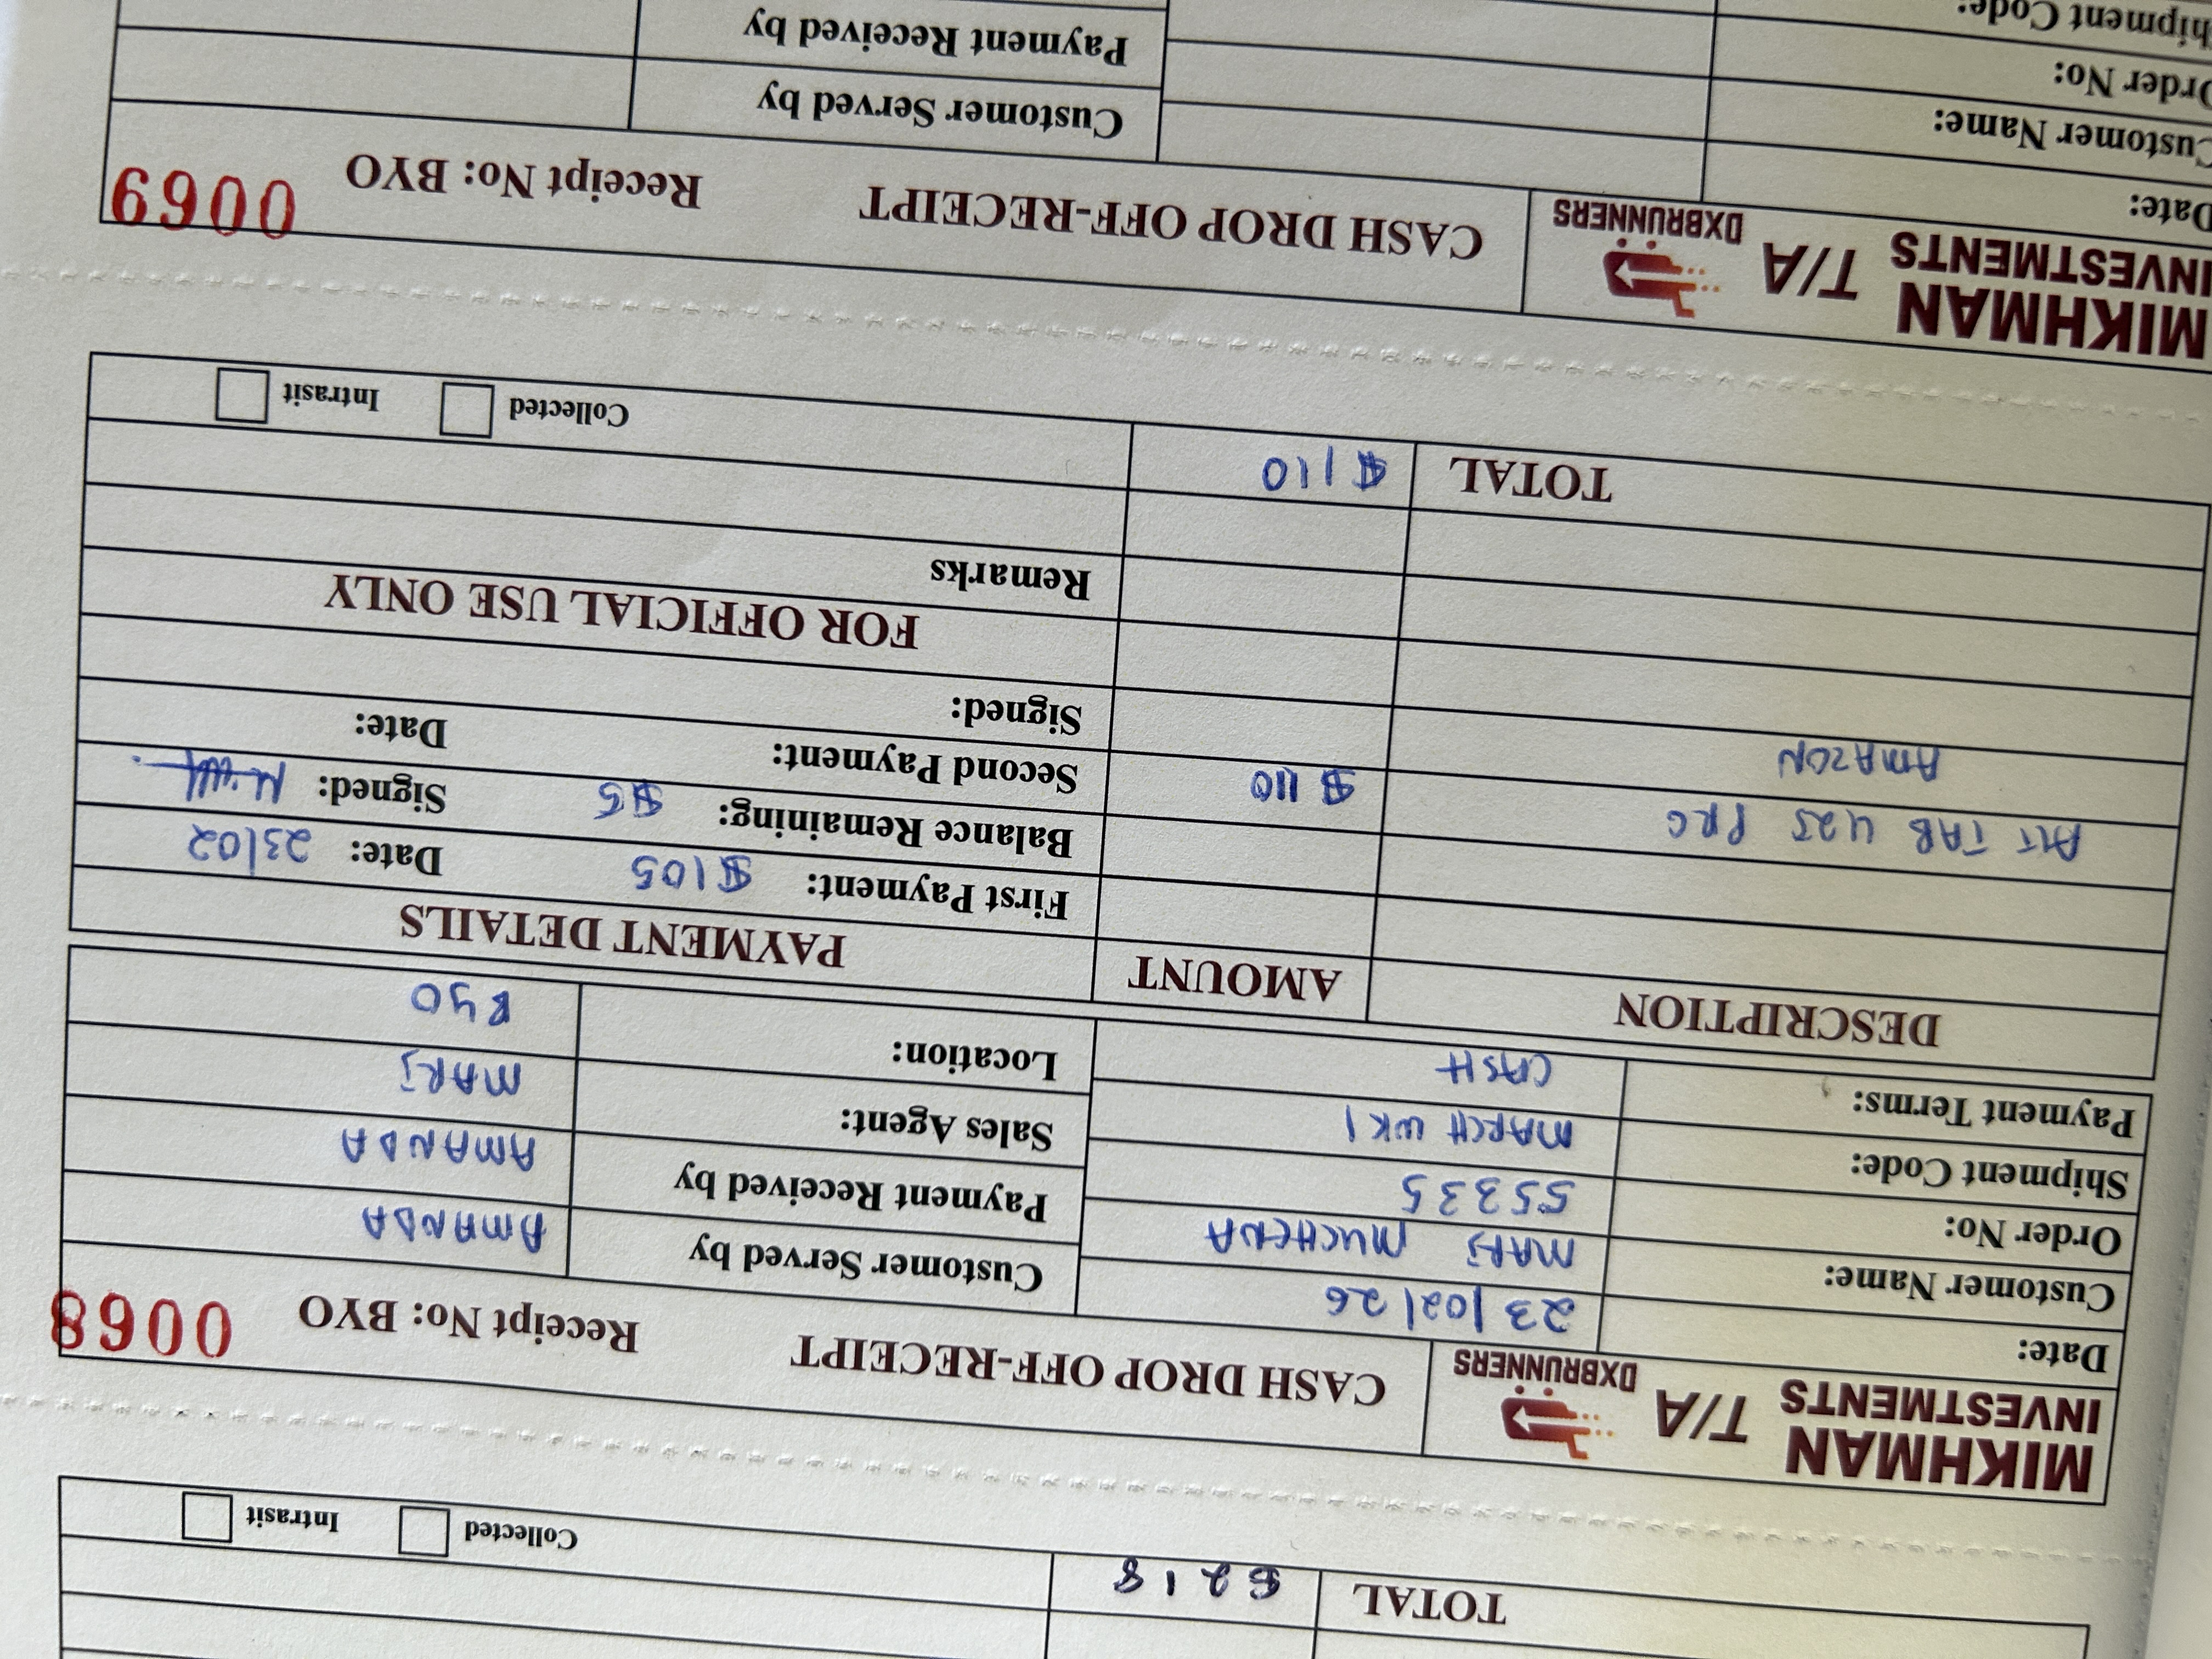 TOTAL $218
Collected Intrasit
MIKHMAN INVESTMENTS T/A DXBRUNNERS CASH DROP OFF-RECEIPT Receipt No: BYO 0068
Date: 23/02/26 Customer Served by AMANDA
Customer Name: MARJ MUCHENA Payment Received by AMANDA
Order No: 55335 Sales Agent: MARJ
Shipment Code: MARCH WK1 Location: BYO
Payment Terms: CASH
DESCRIPTION AMOUNT PAYMENT DETAILS
First Payment: $105 Date: 23/02
Balance Remaining: $5 Signed:
TAB U25 PRC $110 Second Payment: Date:
AMAZON Signed:
FOR OFFICIAL USE ONLY
Remarks
TOTAL $110
Collected Intrasit
MIKHMAN INVESTMENTS T/A DXBRUNNERS CASH DROP OFF-RECEIPT Receipt No: BYO 0069
Date: Customer Served by
Customer Name: Payment Received by
Order No:
Shipment Code: